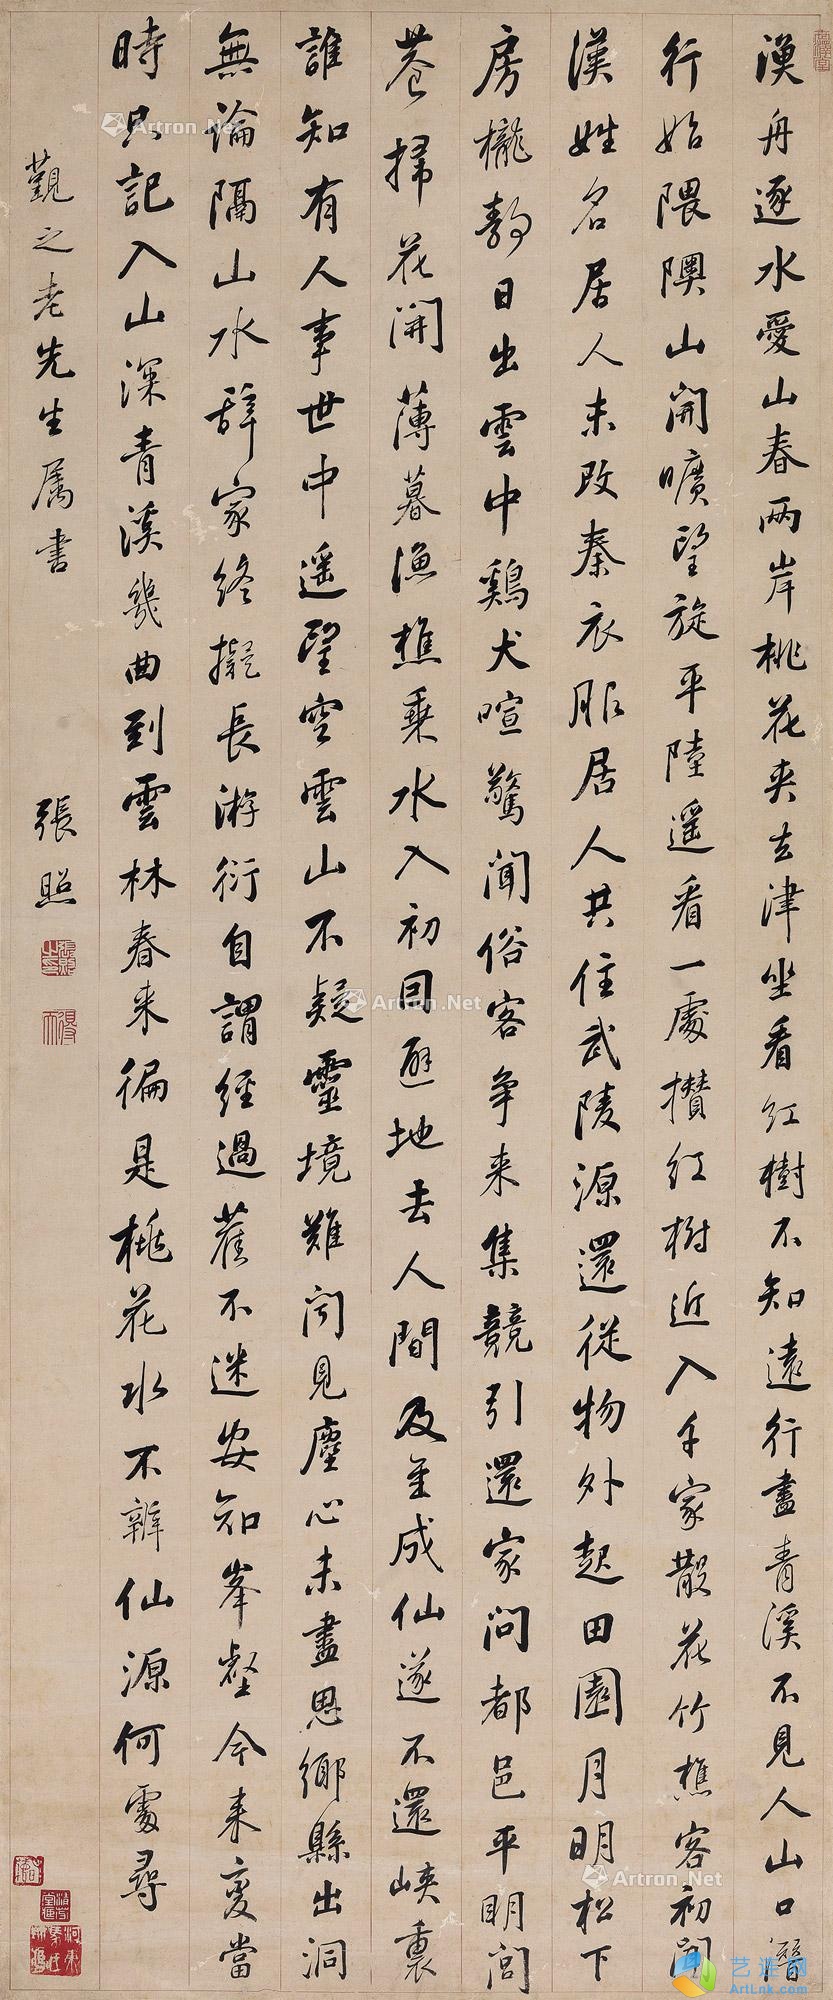 漁舟逐水愛山春兩岸桃花夾去津坐看紅樹不知遠行盡青溪不見人山口潛
行始隈隩山開曠望旋平陸遙看一處攢紅樹近入千家散花竹樵客初聞
漢姓名居人未改秦衣服居人共住武陵源還從物外起田園月明松下
房櫳靜日出雲中鷄犬喧驚聞俗客爭來集競引還家問都邑平明閭
巷掃花開薄暮漁樵乘水入初因避地去人間及至成仙遂不還峽裏
誰知有人事世中遙望空雲山不疑靈境難聞見塵心未盡思鄉縣出洞
無論隔山水辭家終擬長游衍自謂經過舊不迷安知峯壑今來變當
時只記入山深青溪幾曲到雲林春來徧是桃花水不辨仙源何處尋
觀之老先生属書 張照
張照之印
得天
Artron.Net
Artron.Net
Artron.Net
Artron.Net
艺涯网
ArtLib.cn